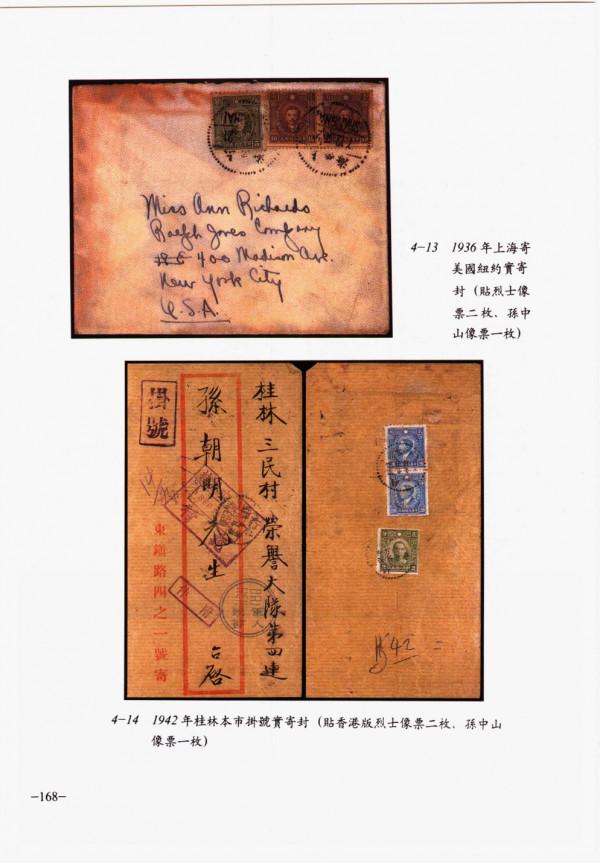 Miss Ann Richards
Ralph Jones Company
400 Madison Ave.
New York City
U.S.A.
4-13 1936年上海寄
美國紐約實寄
封（貼烈士像
票二枚、孫中
山像票一枚）
掛號
桂林三民村榮譽大隊第四連
孫朝明先生 台啓
東鎮路四之一號寄
42
4-14 1942年桂林本市掛號實寄封（貼香港版烈士像票二枚、孫中山
像票一枚）
-168-